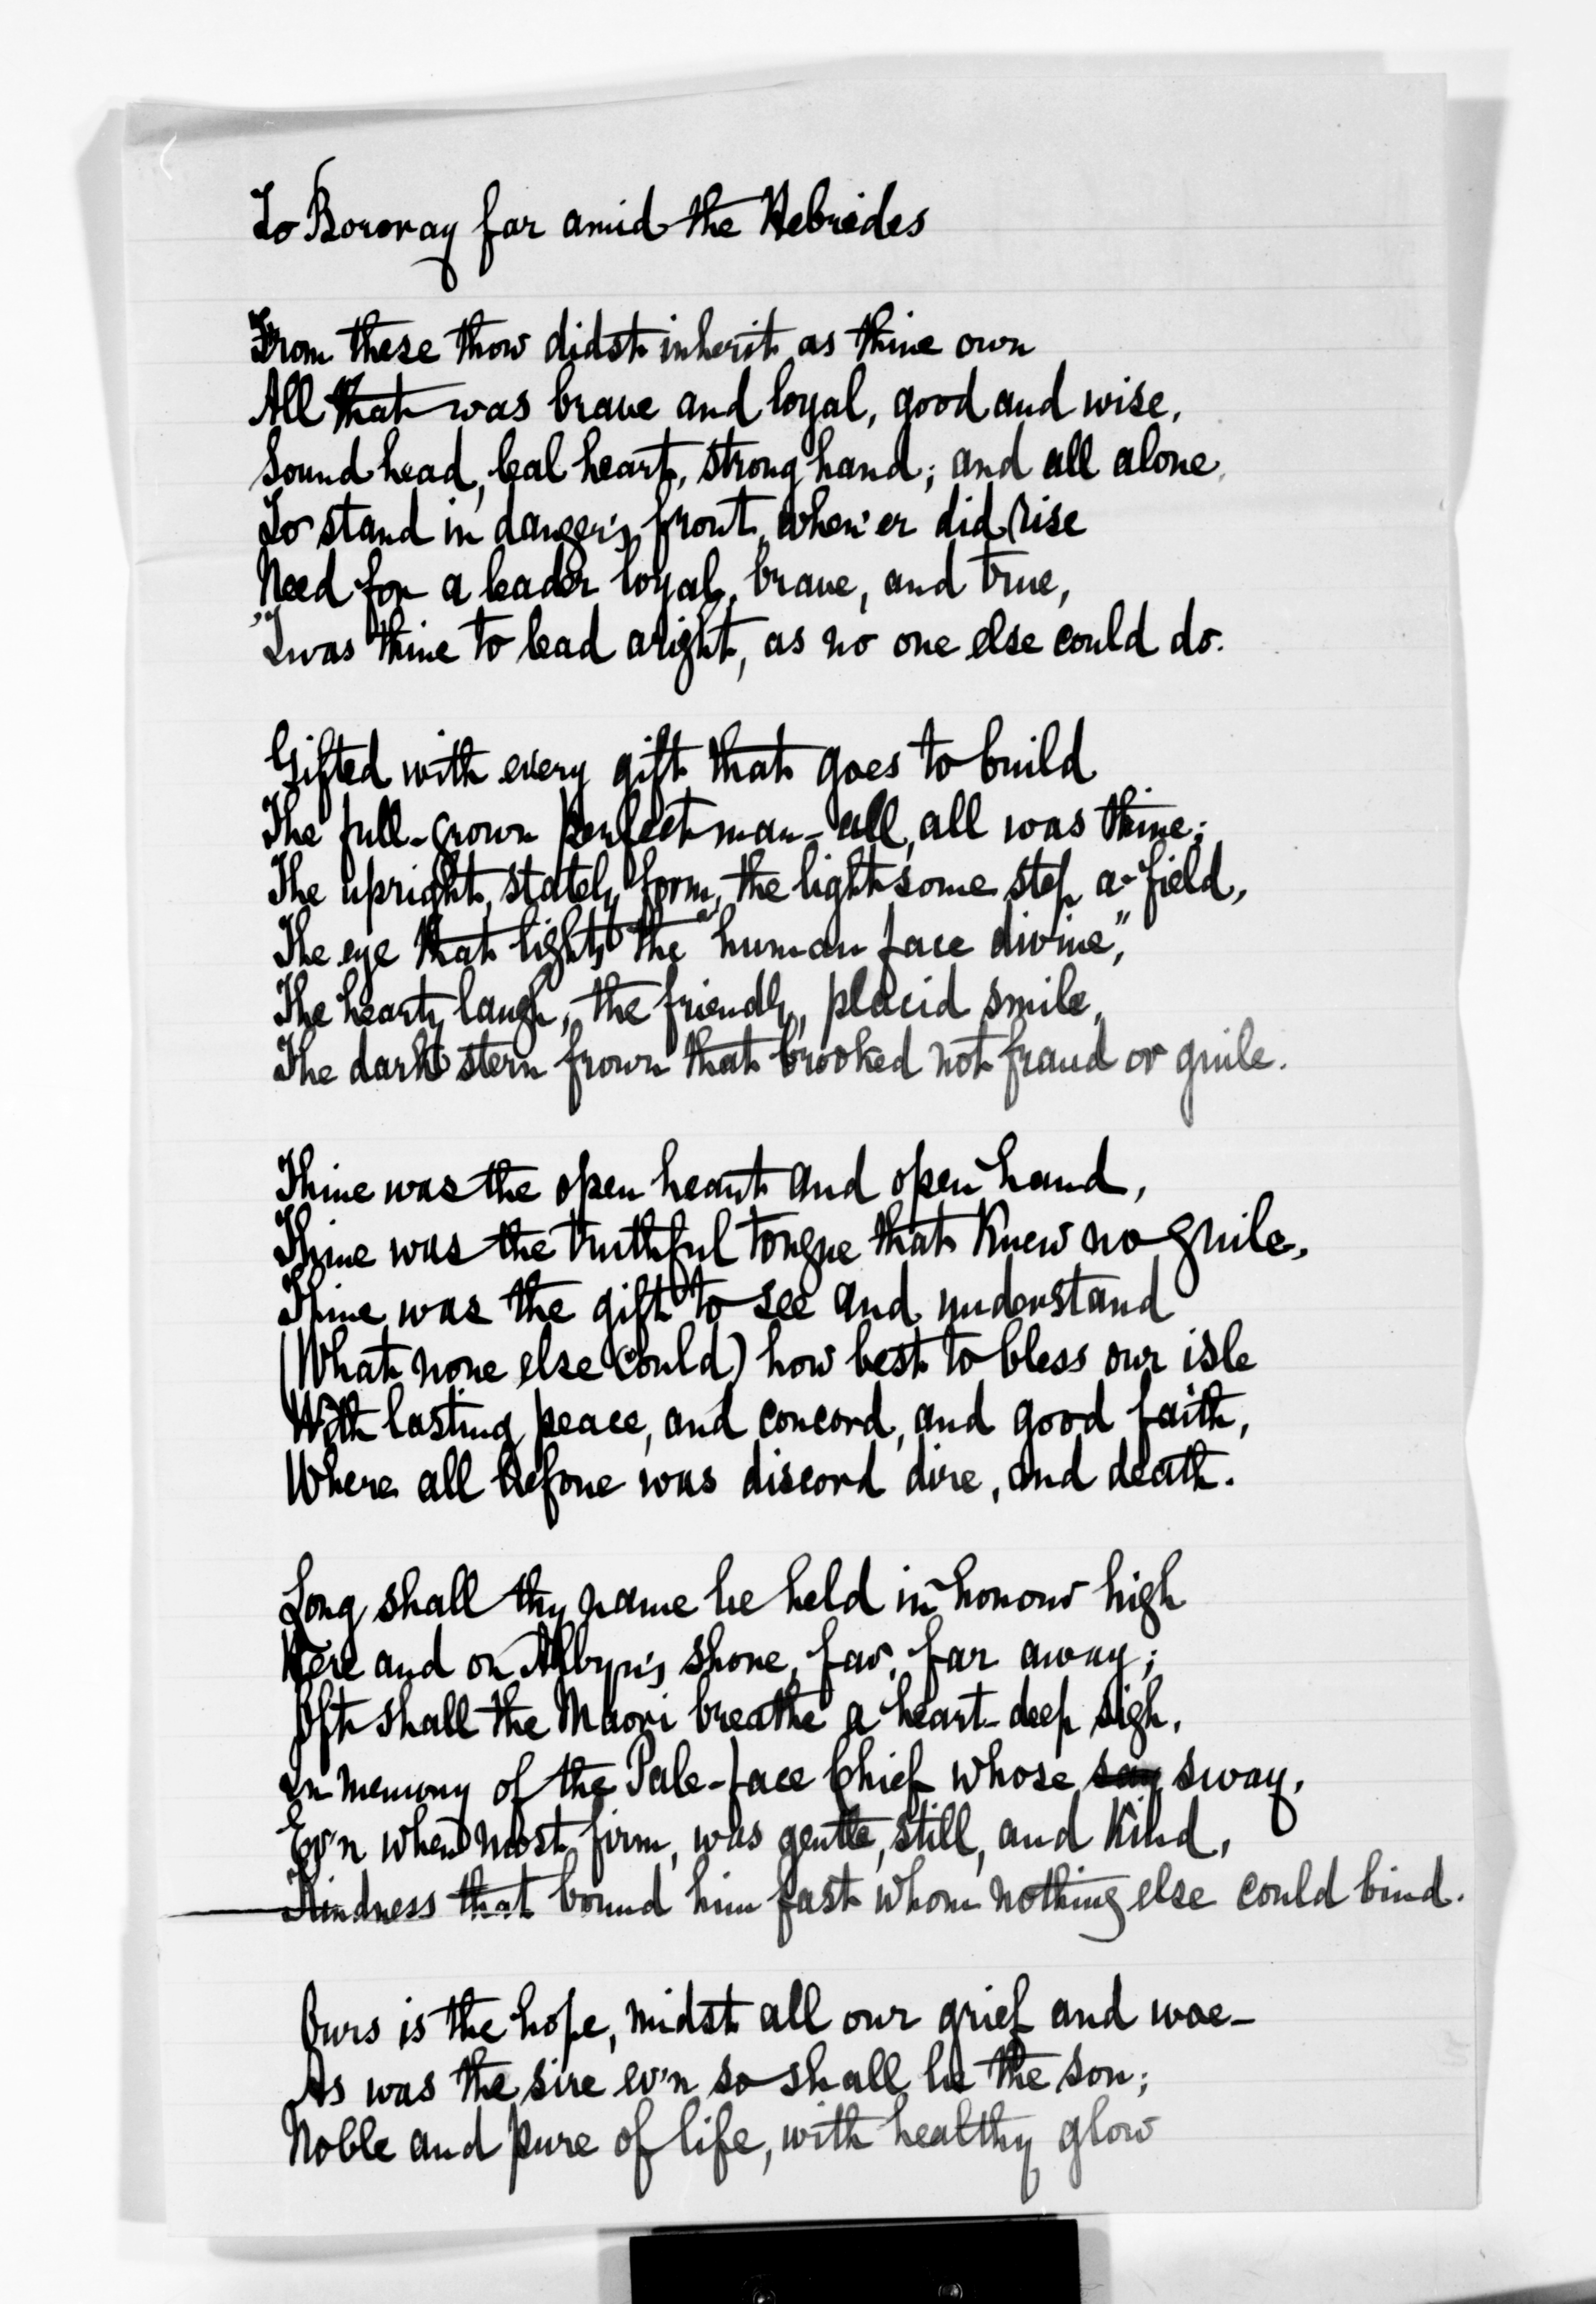 To Bororay far amid the Hebrides
From these thou didst inherit as thine own
All that was brave and loyal, good and wise,
Sound head, leal heart, strong hand; and all alone,
To stand in danger's front, when'er did rise
Need for a leader loyal, brave, and true,
'Twas thine to lead aright, as no one else could do.
Gifted with every gift that goes to build
The full-grown perfect man - all, all was thine;
The upright, stately form, the lightsome step a-field,
The eye that lights the "human face divine",
The hearty laugh, the friendly, placid smile,
The dark stern frown that brooked not fraud or guile.
Thine was the open heart and open hand,
Thine was the truthful tongue that knew no guile,
Thine was the gift to see and understand
(What none else could) how best to bless our isle
With lasting peace, and concord, and good faith,
Where all before was discord dire, and death.
Long shall thy name be held in honour high
Here and on Albyn's shore, far, far away;
Oft shall the Maori breathe a heart-deep sigh,
In memory of the Pale-face Chief whose say sway,
Ev'n when most firm, was gentle, still, and kind,
Kindness that bound him fast whom nothing else could bind.
Ours is the hope, midst all our grief and woe -
As was the sire ev'n so shall be the son;
Noble and pure of life, with healthy glow